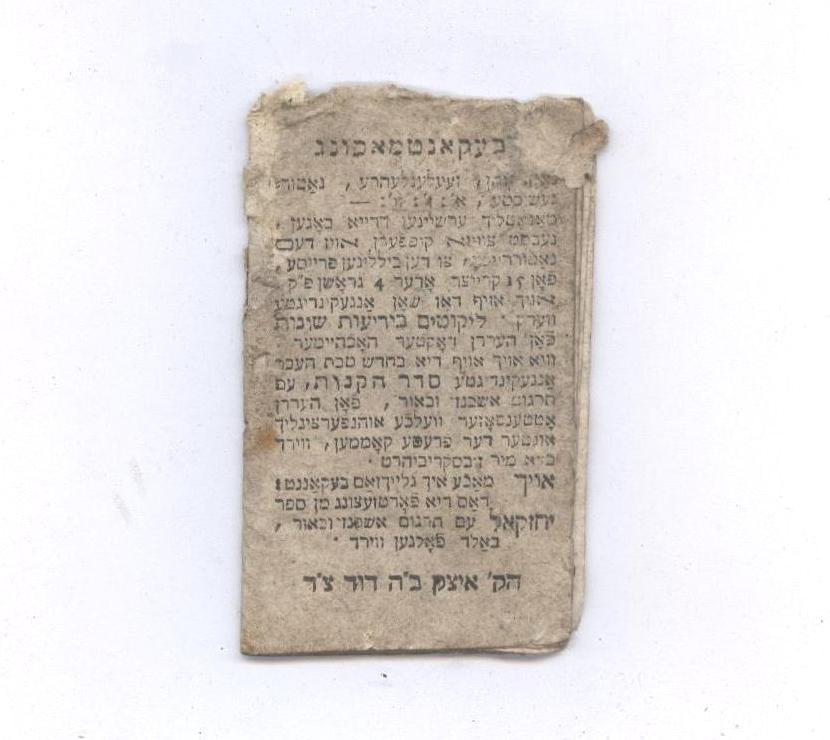 בעקאנטמאכונג
זעעלענלעהרע, נאַטור
מאָנאַטליך ערשיינען דרייא באָגען,
נעבסט צווייא קופפערן אויז דעם
צו דען ביללינען פרייסע,
פֿאָן 15 קרייצר אָדער 4 גראָשן פ"ק
אויך אויף דאז שאָן אָנגעקינדיגטע
ווערק · ליקוטים ביריעות שונות
פֿאָן הערדן דאָקטער האָכהיימער ·
וויא אויך אויף דיא בחדש טבת העבר
אָנגעקינדיגטע סדר הקנות, עם
תרגום אשכנז ובאור, פֿאָן הערדן
אָטטענסאָזער וועלכע אונפערצינליך
אונטער דער פרעסע קאָממען, ווירד
בייא מיר סבסקריביהרט ·
אויך מאַכע איך גלייכזאם בעקאַננט:
דאס דיא פֿאָרטזעצונג מן ספר
יחזקאל עם תרגום אשכנז ובאור,
באַלד פֿאָלגען ווירד ·
הק' איצק ב"ה דוד צ"ד